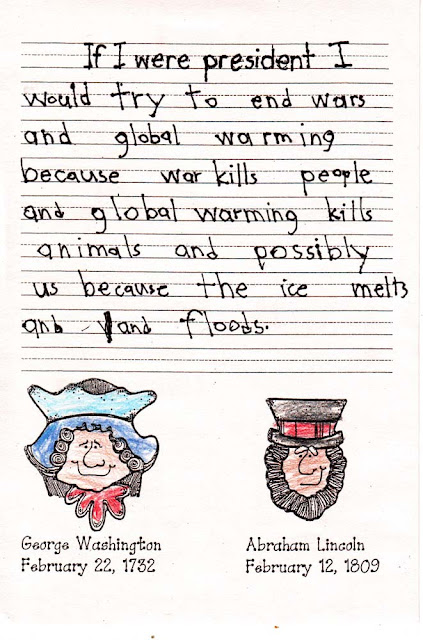 If I were president I
would try to end wars
and global warming
because war kills people
and global warming kills
animals and possibly
us because the ice melts
and land floods.
George Washington
February 22, 1732
Abraham Lincoln
February 12, 1809